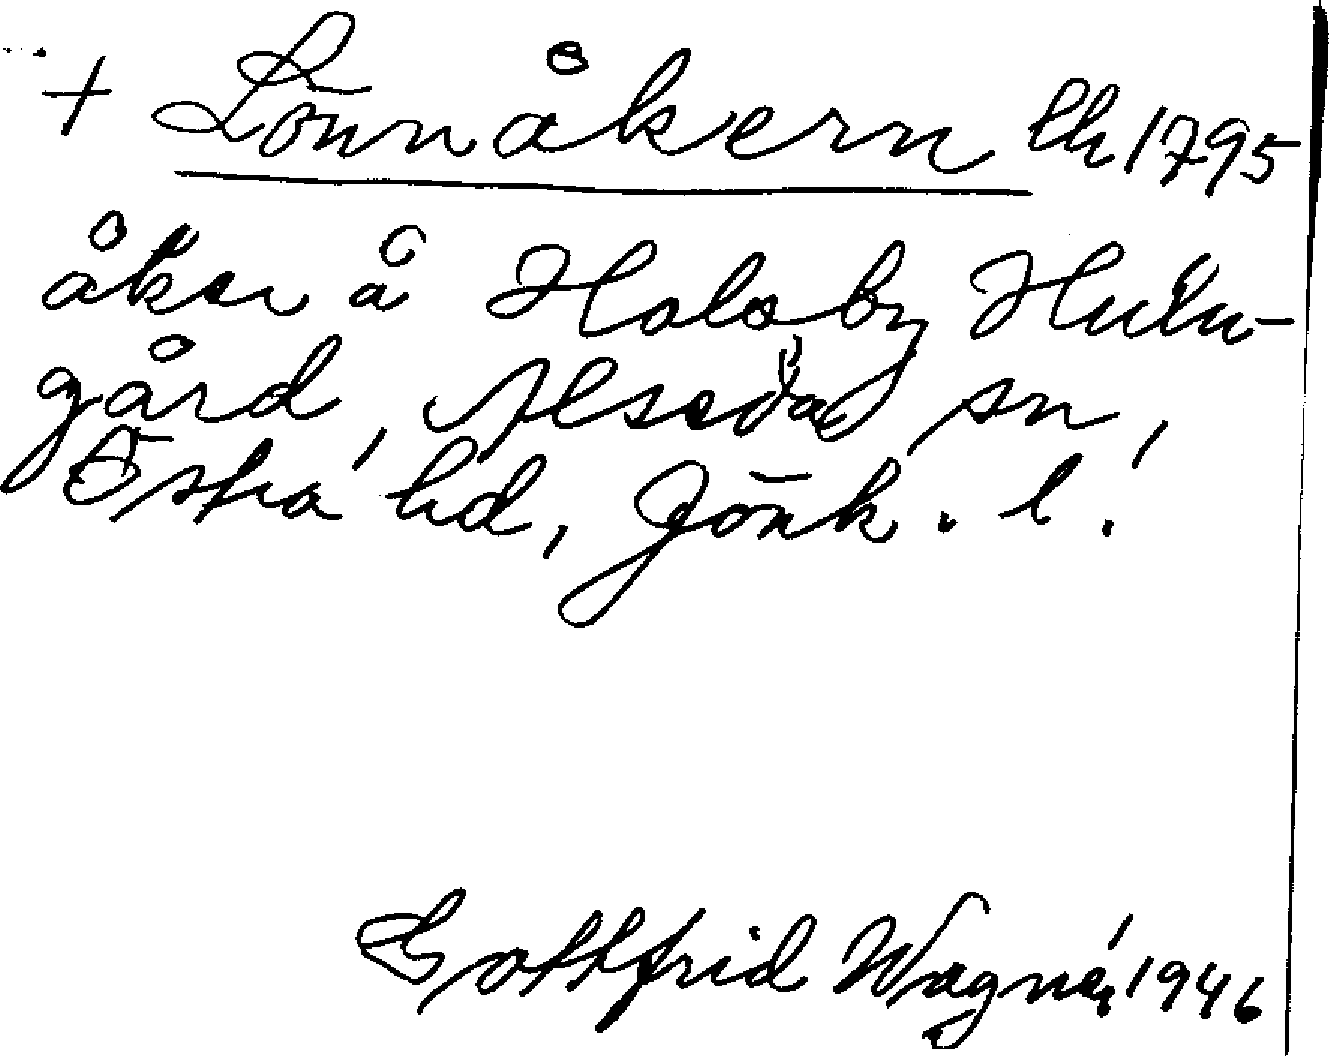 + Lönnåkern lh 1795
åker å Holsby Hulu-
gård, Alseda sn,
Östra hd, Jönk. l.
Gottfrid Wagnér 1946